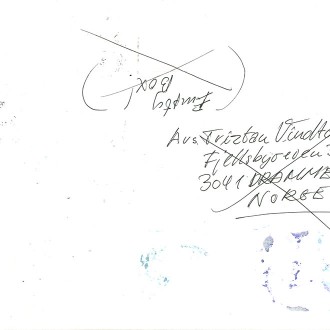 (Empty
Box!)
Avs. Triztan Vindt
Fjellsbyveien
3041 DRAMME
NORGE